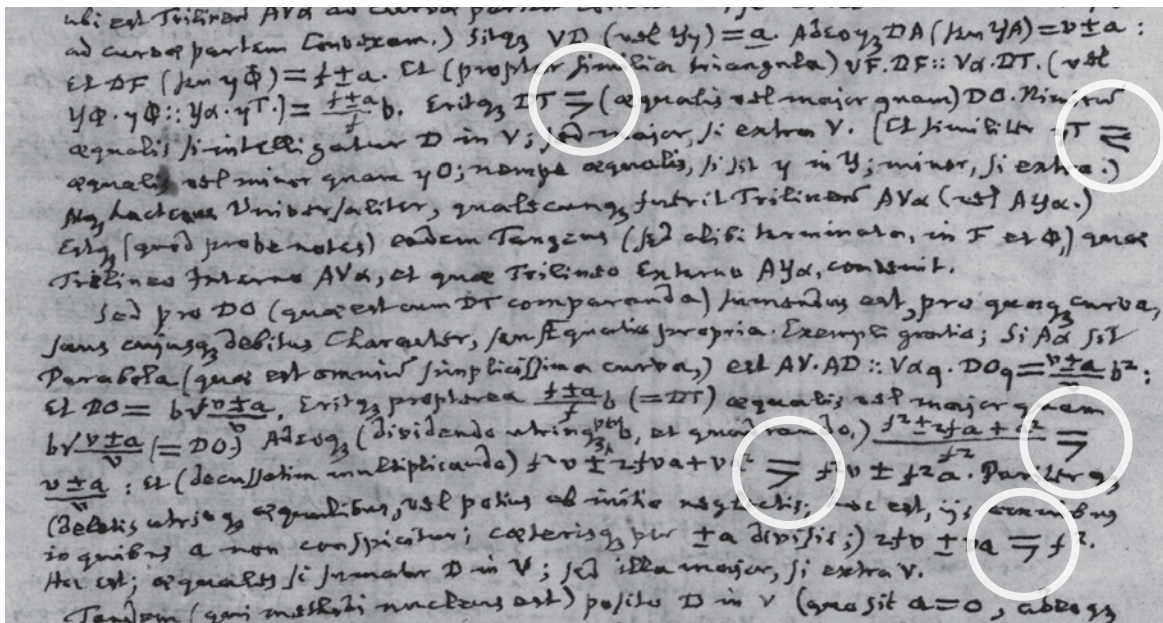 ubi est Trilineū AVα ad curvæ partem
ad curvæ partem Convexam.) Sitqȝ VD (vel Yy) = a. Adeoqȝ DA (seu yA) = v ± a :
Et DF (seu yΦ) = f ± a. Et (propter similia triangula) VF. DF :: Vα. DT. (vel
YΦ. yΦ :: Yα. yT.) = f±a/f b. Eritqȝ DT ⩾ (æqualis vel major quam) DO. Nimirū
æqualis si intelligatur D in V; sed major, si extra V. (Et similiter yT ⩽
æqualis vel minor quam yO; nempe æqualis, si sit y in Y; minor, si extra.)
Atqȝ hactenus Universaliter, qualecunqȝ fuerit Trilineū AVα (vel AYα.)
Estqȝ (quod probe notes) eadem Tangens (sed alibi terminata, in F et Φ,) quæ
Trilineo Interno AVα, et quæ Trilineo Externo AYα, convenit.
Sed pro DO (quæ est cum DT comparanda) sumendus est, pro quaqȝ curva,
suus cujusqȝ debitus Character, seu Æquatio propria. Exempli gratia; Si Aα sit
Parabola (quæ est omniū simplicissima curva,) est AV. AD :: Vαq. DOq = v±a/v b² :
Et DO = b√v±a/v. Eritqȝ propterea f±a/f b (=DT) æqualis vel major quam
b√v±a/v (=DO.) Adeoqȝ (dividendo utrinqȝ per b, et quadrando,) f²±2fa+a²/f² ⩾
v±a/v : Et (decussatim multiplicando) f²v ± 2fva + va² ⩾ f²v ± f²a. Pariterqȝ
(deletis utrinqȝ æqualibus, vel potius ab initio neglectis, hoc est, ijs omnibus
in quibus a non conspicitur; cæterisqȝ per ±a divisis;) 2fv ± va ⩾ f².
Hoc est; æqualis si sumatur D in V; sed illa major, si extra V.
Tandem (qui methodi nucleus est) posito D in V (quo sit a=0, adeoqȝ